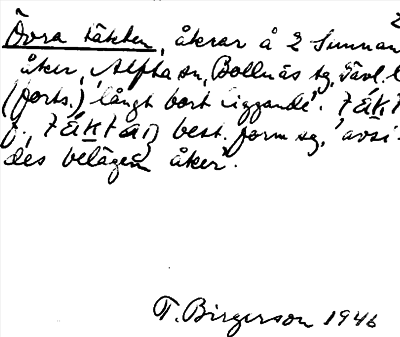 2
Övra täkten, åkrar å 2 Sunnan
åker, Alfta sn, Bollnäs tg, Gävl. l
(forts.) 'långt bort liggande'. täkt
f., täktän best. form sg. 'avsi-
des belägen åker'.
T. Birgerson 1946